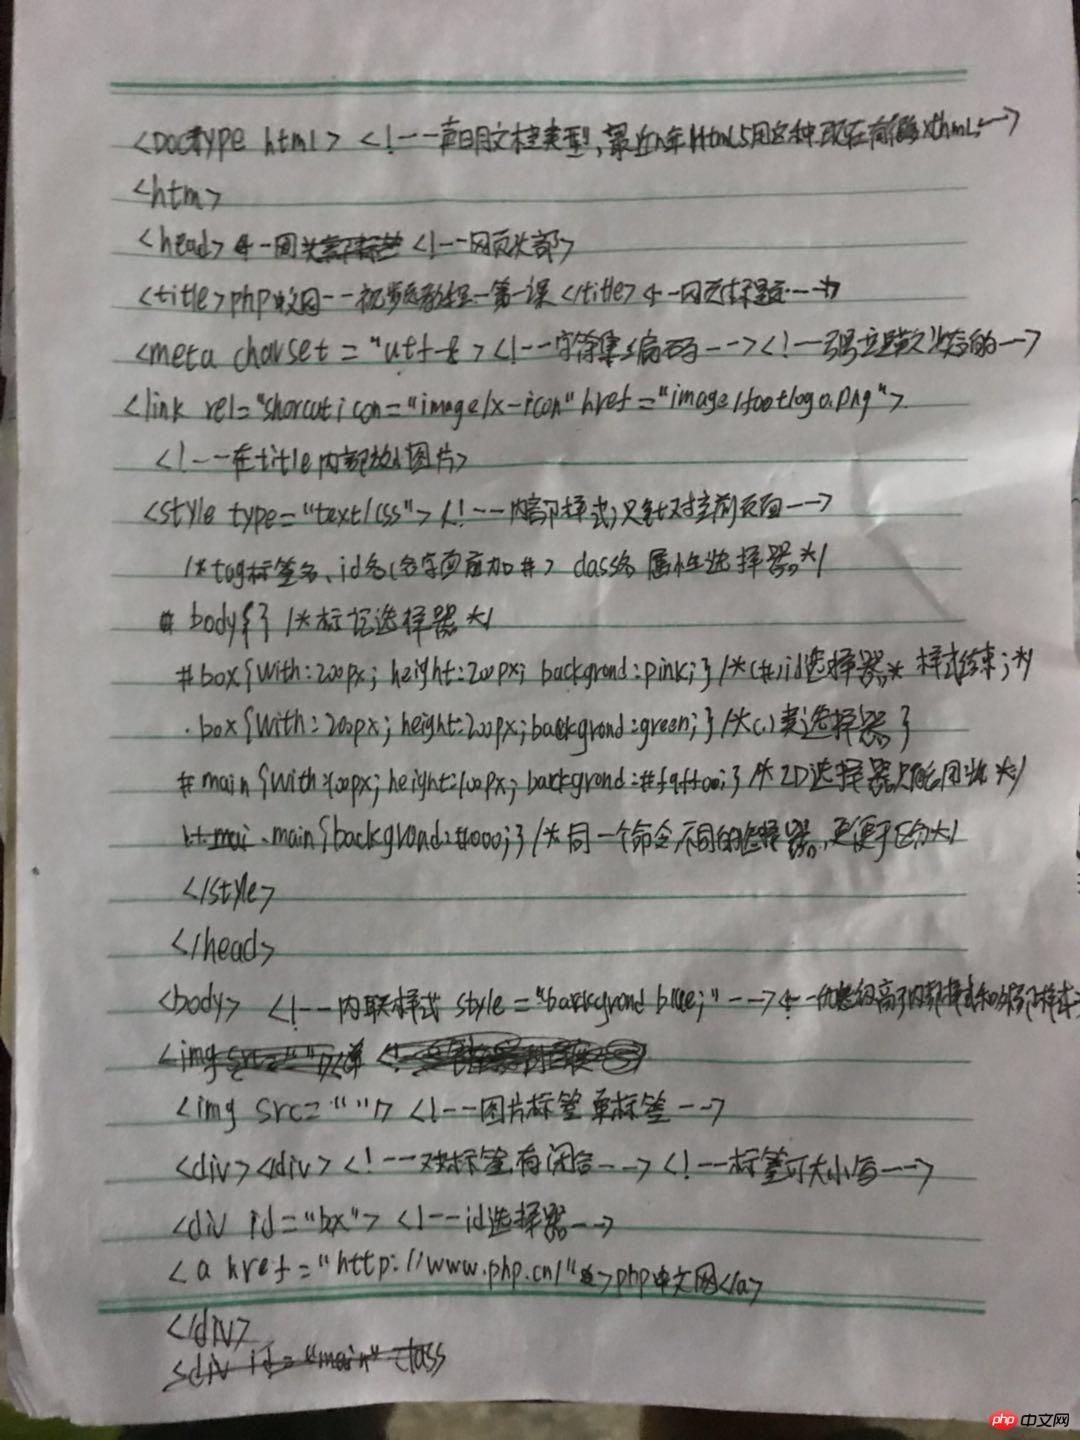 <Doctype html> <!--声明文档类型,最近n年Html5用这种,现在 xthml-->
<htm>
<head> <!--网页头部>
<title>php中文网--视频教程--第一课</title> <--网页标题-->
<meta charset="utf-8> <!--字符集编码--> <!-- -->
<link rel="shorcut icon="image/x-icon" href="image/footlogo.png">
<!--在title内部放小图片>
<style type="text/css"> <!--内部样式,只针对当前页面-->
/*tag标签名、id名(名字面前加#) class名 属性选择器*/
body{} /*标记选择器*/
#box{with:200px; height:200px; backgrond:pink;} /*(#)id选择器* 样式结束;*/
.box{with:200px; height:200px; backgrond:green;} /*(.)类选择器}
#main{with:100px; height:100px; backgrond:#f9ff00;} /*ID选择器只能用 */
.main{backgroud:#000;} /*同一个命令,不同的选择器,更便于区分*/
</style>
</head>
<body> <!--内联样式 style="backgrond blue;"--> <--优先级高于内部样式和外部样式
<img src=""/> <!--图片标签 单标签-->
<div><div> <!--双标签,有闭合--> <!--标签可大小写-->
<div id="bx"> <!--id选择器-->
<a href="http://www.php.cn/">php中文网</a>
</div>
<div id="main" class
php 中文网